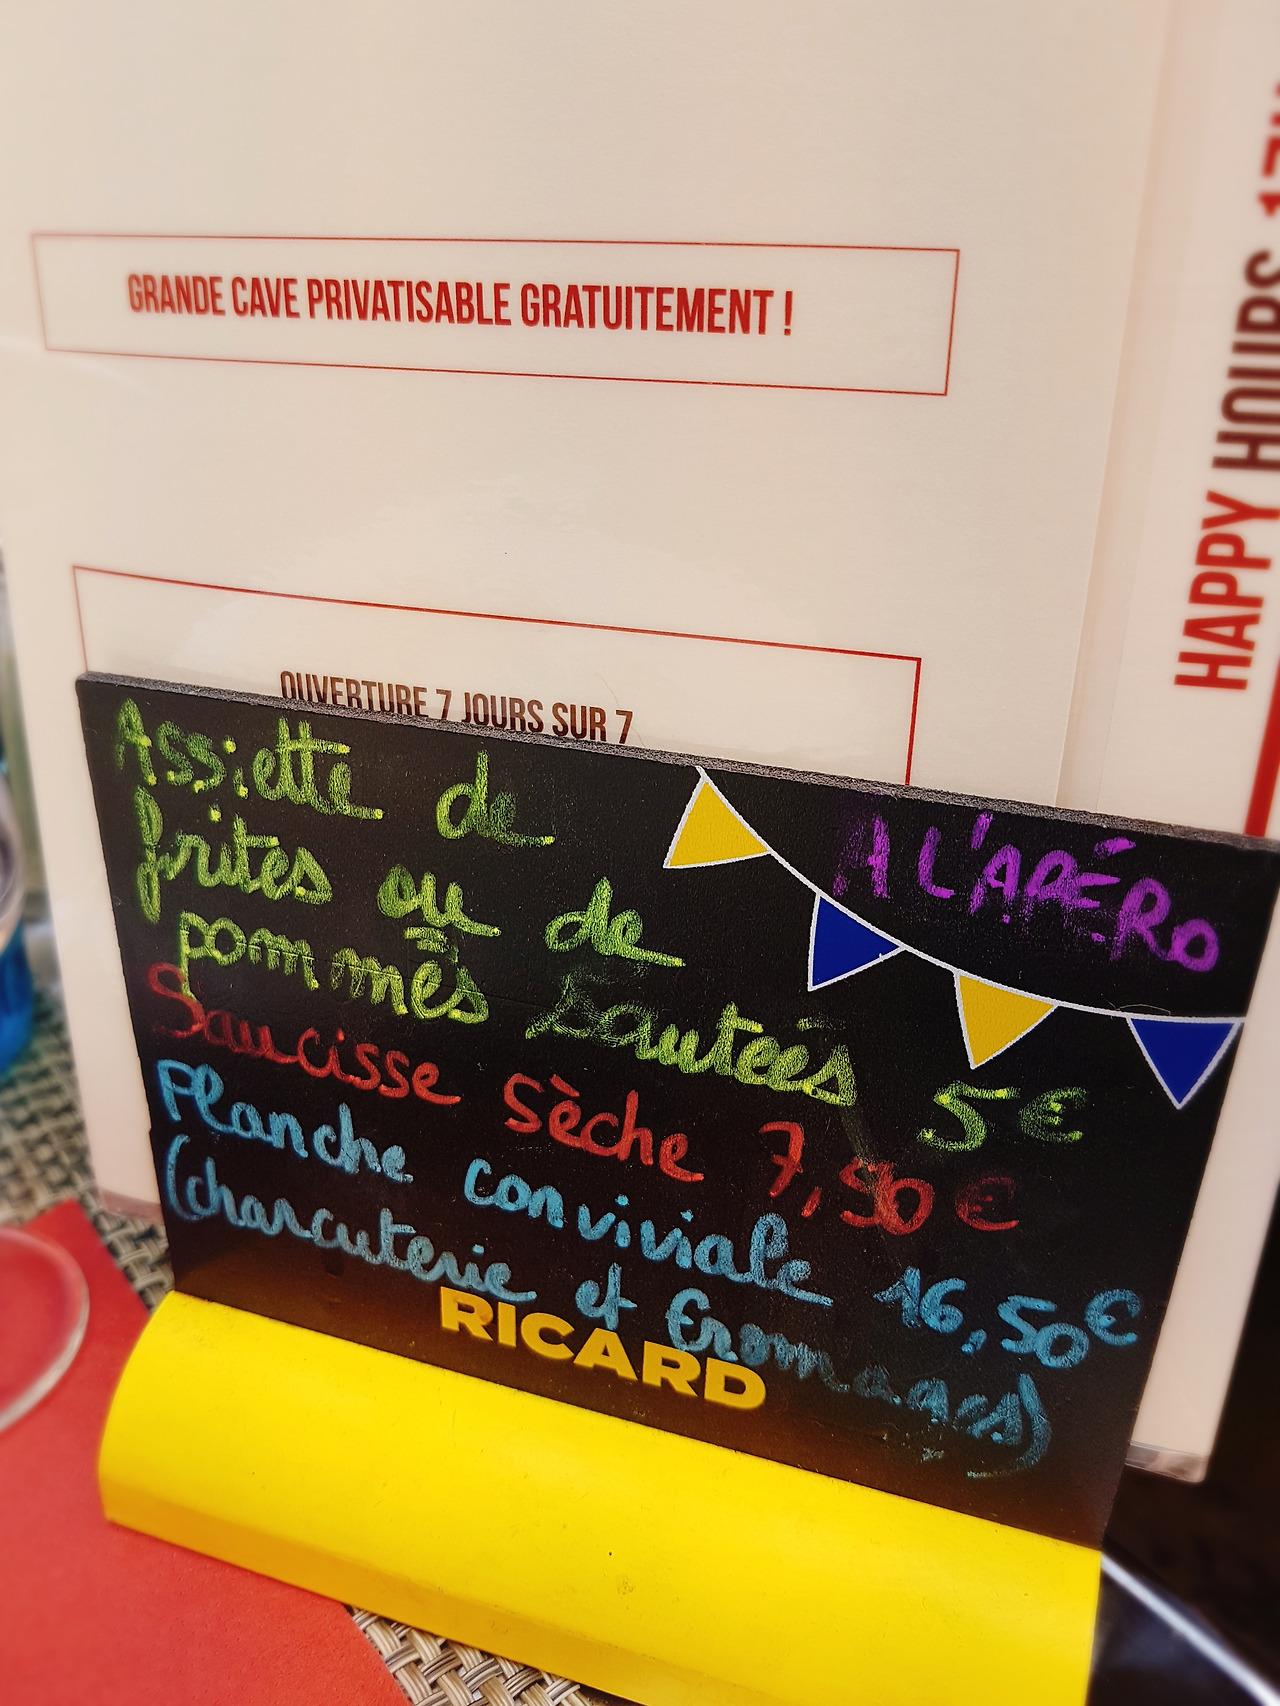 GRANDE CAVE PRIVATISABLE GRATUITEMENT !
OUVERTURE 7 JOURS SUR 7
HAPPY HOURS
A L'APÉRO
Assiette de
frites ou de
pommes sautées 5€
Saucisse sèche 7,50€
Planche conviviale 16,50€
(charcuterie et fromages)
RICARD